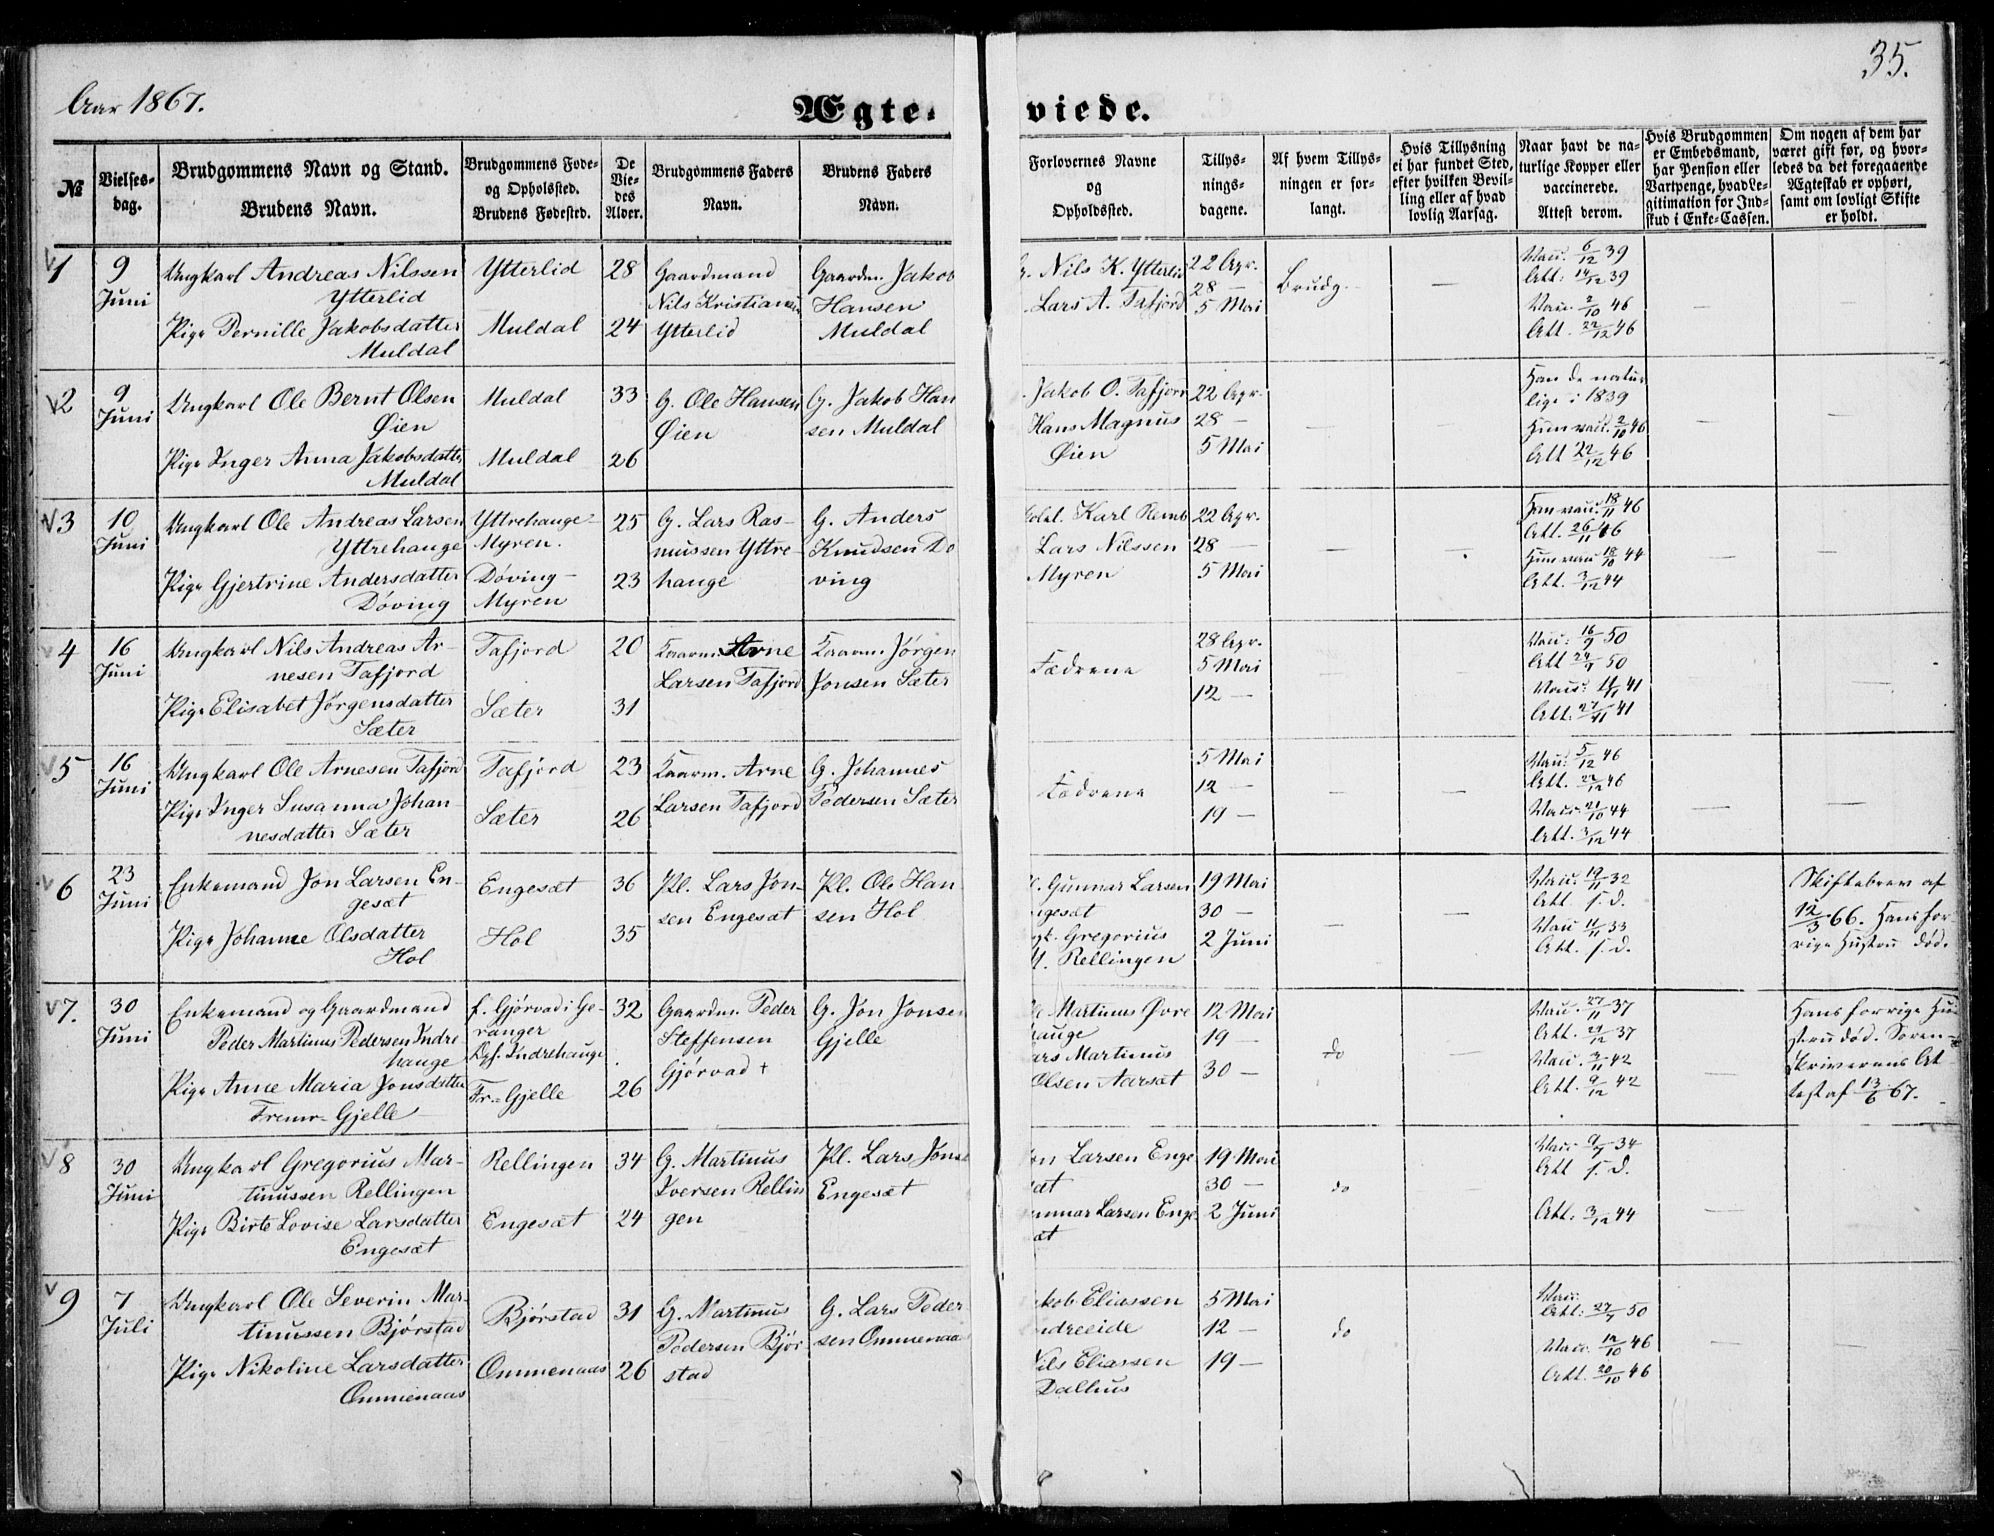 Aar 1867.
Ægte-
viede.
35.
№
Vielses-
dag.
Brudgommens Navn og Stand.
Brudens Navn.
Brudgommens Føde-
og Opholssted.
Brudens Fødested.
De
Vie-
des
Alder.
Brudgommens Faders
Navn.
Brudens Faders
Navn.
Forlovernes Navne
og
Opholdssted.
Tillys-
nings-
dagene.
Af hvem Tillys-
ningen er for-
langt.
Hvis Tillysning
ei har fundet Sted,
efter hvilken Bevil-
ling eller af hvad
lovlig Aarsag.
Naar havt de na-
turlige Kopper eller
vaccinerede.
Attest derom.
Hvis Brudgommen
er Embedsmand,
har Pension eller
Vartpenge, hvad Le-
gitimation for Ind-
skud i Enke-Cassen.
Om nogen af dem har
været gift før, og hvor-
ledes da det foregaaende
Ægteskab er ophørt,
samt om lovligt Skifte
er holdt.
1
9
Juni
Ungkarl Andreas Nilssen
Ytterlid
Pige Pernille Jakobsdatter
Muldal
Ytterlid
Muldal
28
24
Gaardmand
Nils Kristiansen
Ytterlid
Gaardm. Jakob
Hansen
Muldal
G. Nils K. Ytterlid
Lars A. Tafjord
22 Apr.
28 —
5 Mai
Brudg.
—
Vau. 6/12 39
Att. 14/12 39
Vau. 2/10 46
Att. 22/12 46
—
—
2
9
Juni
Ungkarl Ole Bernt Olsen
Øien
Pige Inger Anna Jakobsdatter
Muldal
Muldal
Muldal
33
26
G. Ole Hansen
Øien
G. Jakob Han
sen Muldal
Jakob O. Tafjord
Hans Magnus
Øien
22 Apr.
28 —
5 Mai
—
—
Han de natur
lige i 1839
Hun vau. 2/10 46
Att 22/12 46
—
—
3
10
Juni
Ungkarl Ole Andreas Larsen
Yttrehauge
Pige Gjertrine Andersdatter
Døving
Yttrehauge-
Myren.
Døving-
Myren
25
23
G. Lars Ras-
mussen Yttre-
hauge
G. Anders
Knudsen Dø
ving
Karl Remb
Lars Nilssen
Myren
22 Apr.
28 —
5 Mai
—
—
Han vau. 18/11 46
Att. 26/11 46
Hun vau 18/10 44
Att. 3/12 44
—
—
4
16
Juni
Ungkarl Nils Andreas Ar-
nesen Tafjord
Pige Elisabet Jørgensdatter
Sæter
Tafjord
Sæter
20
31
Kaarm. Arne
Larsen Tafjord
Kaarm. Jørgen
Jonsen Sæter
Fædrene
28 Apr.
5 Mai
12 —
—
—
Vau: 16/9 50
Att 24/9 50
Att. 27/11 41
—
—
5
16
Juni
Ungkarl Ole Arnesen Tafjord
Pige Inger Susanna Johan-
nesdatter Sæter
Tafjord
Sæter
23
26
Kaarm. Arne
Larsen Tafjord
G. Johannes
Pedersen Sæter
Fædrene
5 Mai
12 —
19 —
—
—
Vau: 5/12 46
Att. 22/12 46
Vau: 21/10 44
Att. 3/12 44
—
—
6
23
Juni
Enkemand Jon Larsen En-
gesæt
Pige Johanne Olsdatter
Hol
Engesæt
Hol
36
35
Pl. Lars Jon-
sen Engesæt
Pl. Ole Han-
sen Hol
Gunnar Larsen
ngesæt
Gregorius
M. Rellingen
19 Mai
30 —
2 Juni
—
—
Vau. 19/11 32
Att. s. d.
Vau 11/11 33
Att. s. d.
—
Skiftebrev af
12/3 66. Hans for
rige Hustru død.
7.
30
Juni
Enkemand og Gaardmand
Peder Martinus Pedersen Indre
hauge
Pige Anne Maria Jonsdatter
Fremr-Gjelle
f. Gjørvad i Ge-
ranger
Opf. Indrehauge
Fr.-Gjelle
32
26
Gaardm. Peder
Steffensen
Gjørvad +
G. Jon Jonsen
Gjelle
Martinus Øvre
hauge
ars Martinus
Olsen Aarsæt
12 Mai
19 —
30 —
do
—
Vau. 27/11 37
Att. 21/12 37
Vau. 3/11 42
Att. 9/12 42
—
Hans forrige Hu
stru død. Soren-
skriverens At
test af 13/6 67.
8
30
Juni
Ungkarl Gregorius Mar-
tinussen Rellingen
Pige Birte Lovise Larsdatter
Engesæt
Rellingen
Engesæt
34
24
G. Martinus
Iversen Rellin
gen
Pl. Lars Jons
Engesæt
on Larsen Enge
æt
unnar Larsen Enge
æt
19 Mai
30 —
2 Juni
do
—
Vau. 9/7 34
Att s. d.
Att: 3/12 44
—
—
9
7
Juli
Ungkarl Ole Severin Mar-
tinussen Bjørstad
Pige Nikoline Larsdatter
Ommenaas
Bjørstad
Ommenaas
31
26
G. Martinus
Pedersen Bjør
stad
G. Lars Peder-
sen Ommenaas
akob Eliassen
ndreeide
Nils Eliassen
Dalhus
5 Mai
12 —
19 —
do
—
Vau:
Att: 27/7 50
Vau. 12/10 46
Att. 20/10 46
—
—